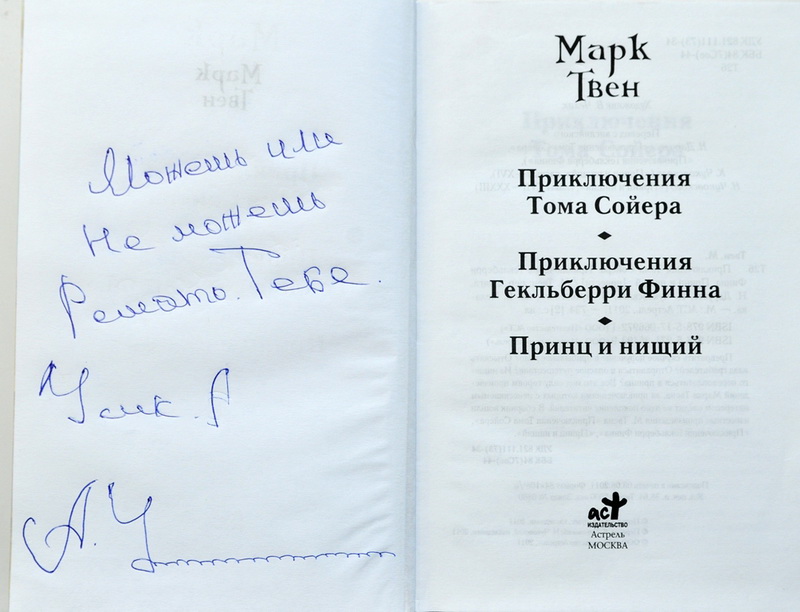 Можешь или
Не можешь
Решать. Тебе.
Усик. А
А. У
Марк
Твен
Приключения
Тома Сойера
Приключения
Гекльберри Финна
Принц и нищий
аст
ИЗДАТЕЛЬСТВО
Астрель
МОСКВА